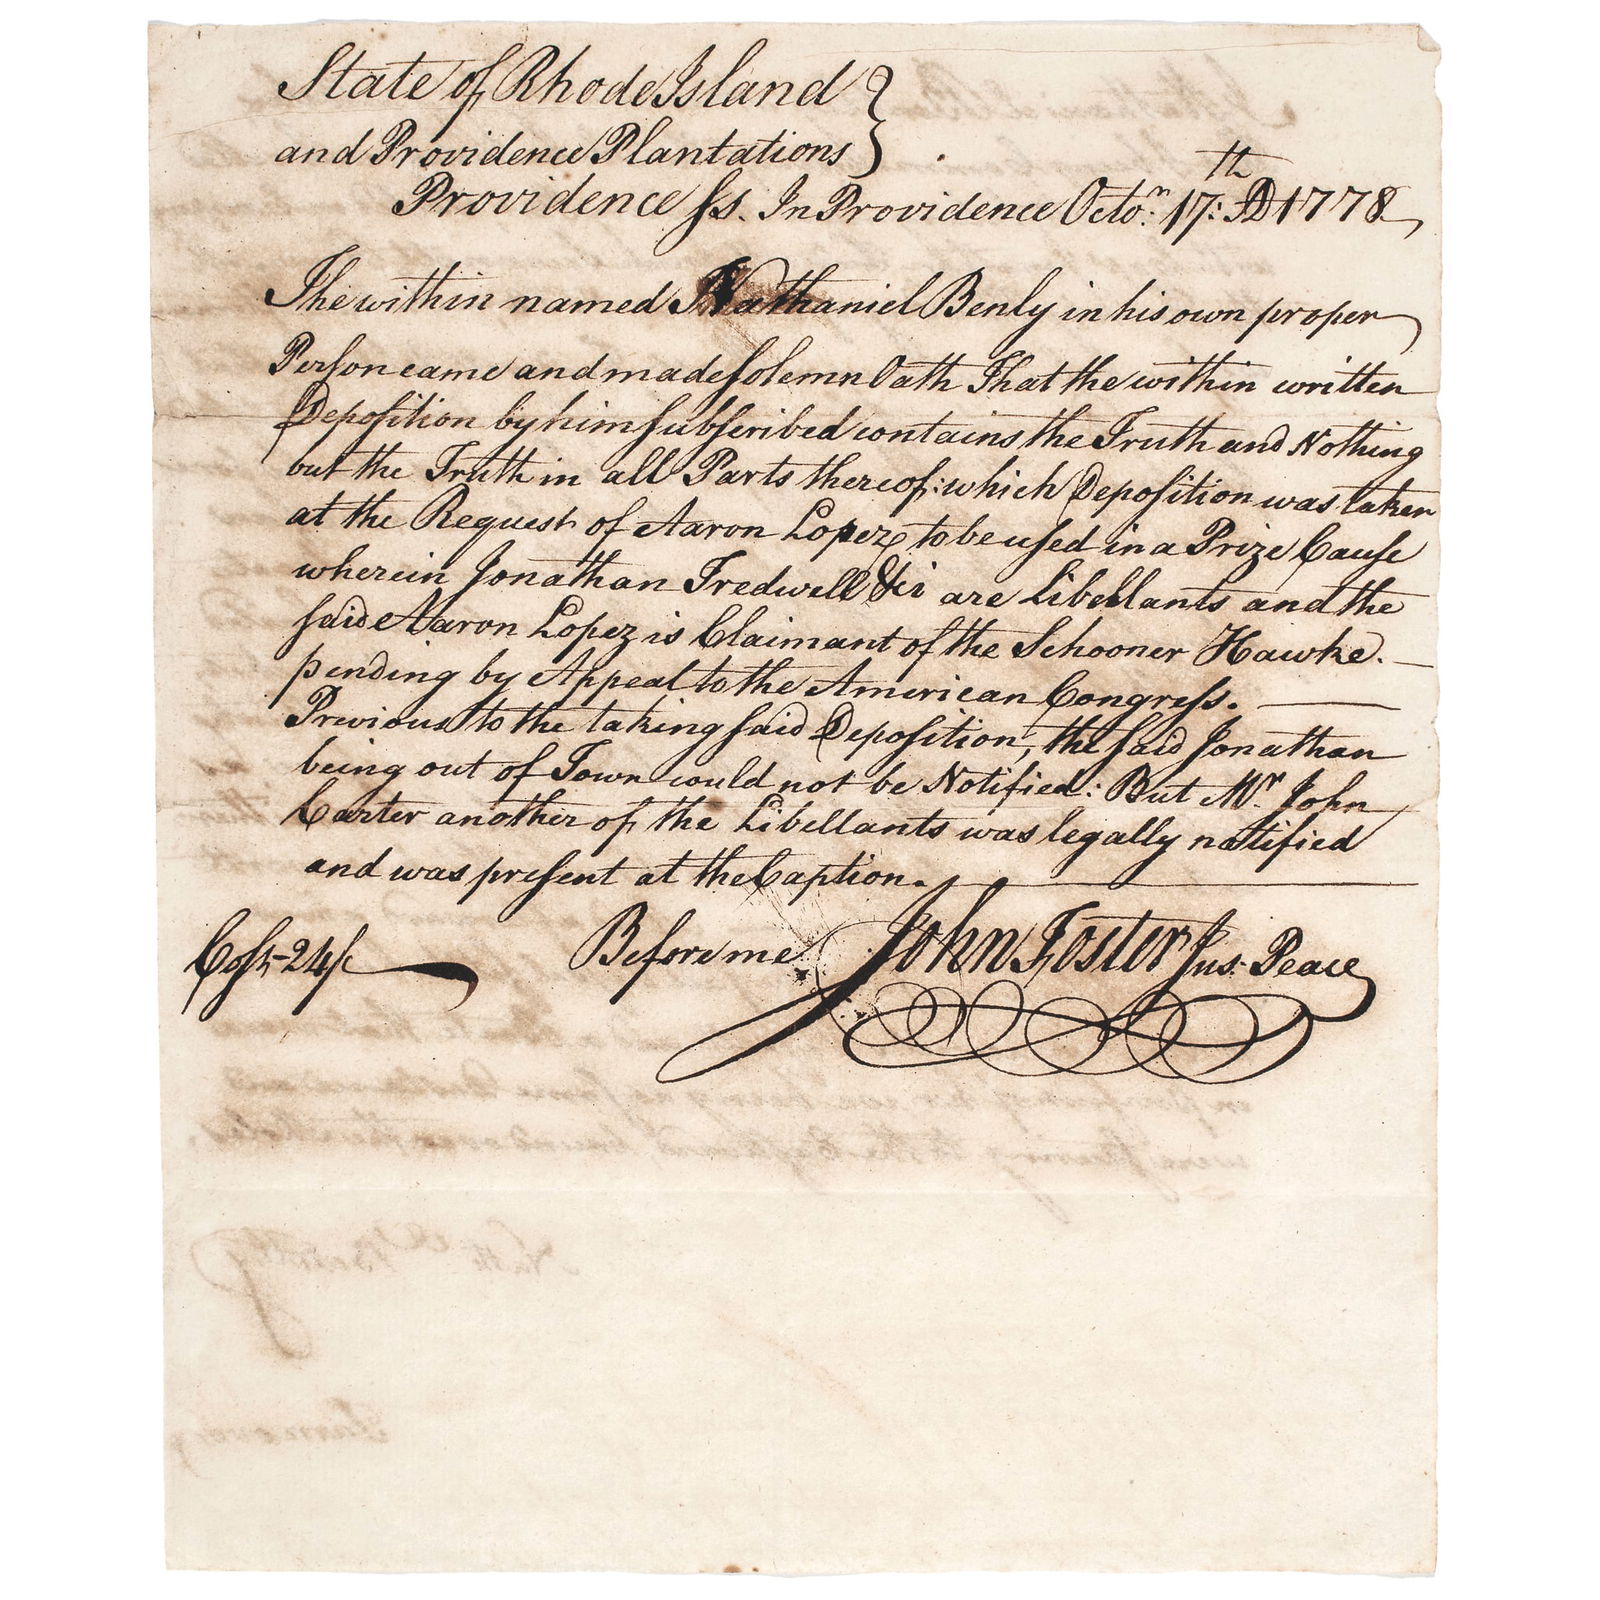 State of Rhode Island }
and Providence Plantations }
Providence ſs. In Providence Octor: 17th: AD 1778
The within named Nathaniel Benly in his own proper
Perſon came and made ſolemn Oath That the within written
Depoſition by him ſubſcribed contains the Truth and Nothing
but the Truth in all Parts thereof: which Depoſition was taken
at the Request of Aaron Lopez to be uſed in a Prize Cauſe
wherein Jonathan Tredwell & are Libellants and the
ſaid Aaron Lopez is Claimant of the Schooner Hawke.
pending by Appeal to the American Congreſs.
Previous to the taking ſaid Depoſition, the ſaid Jonathan
being out of Town could not be Notified: But Mr. John
Carter another of the Libellants was legally notified
and was preſent at the Caption.
Coſt 24/ Before me John Foster Jus: Peace